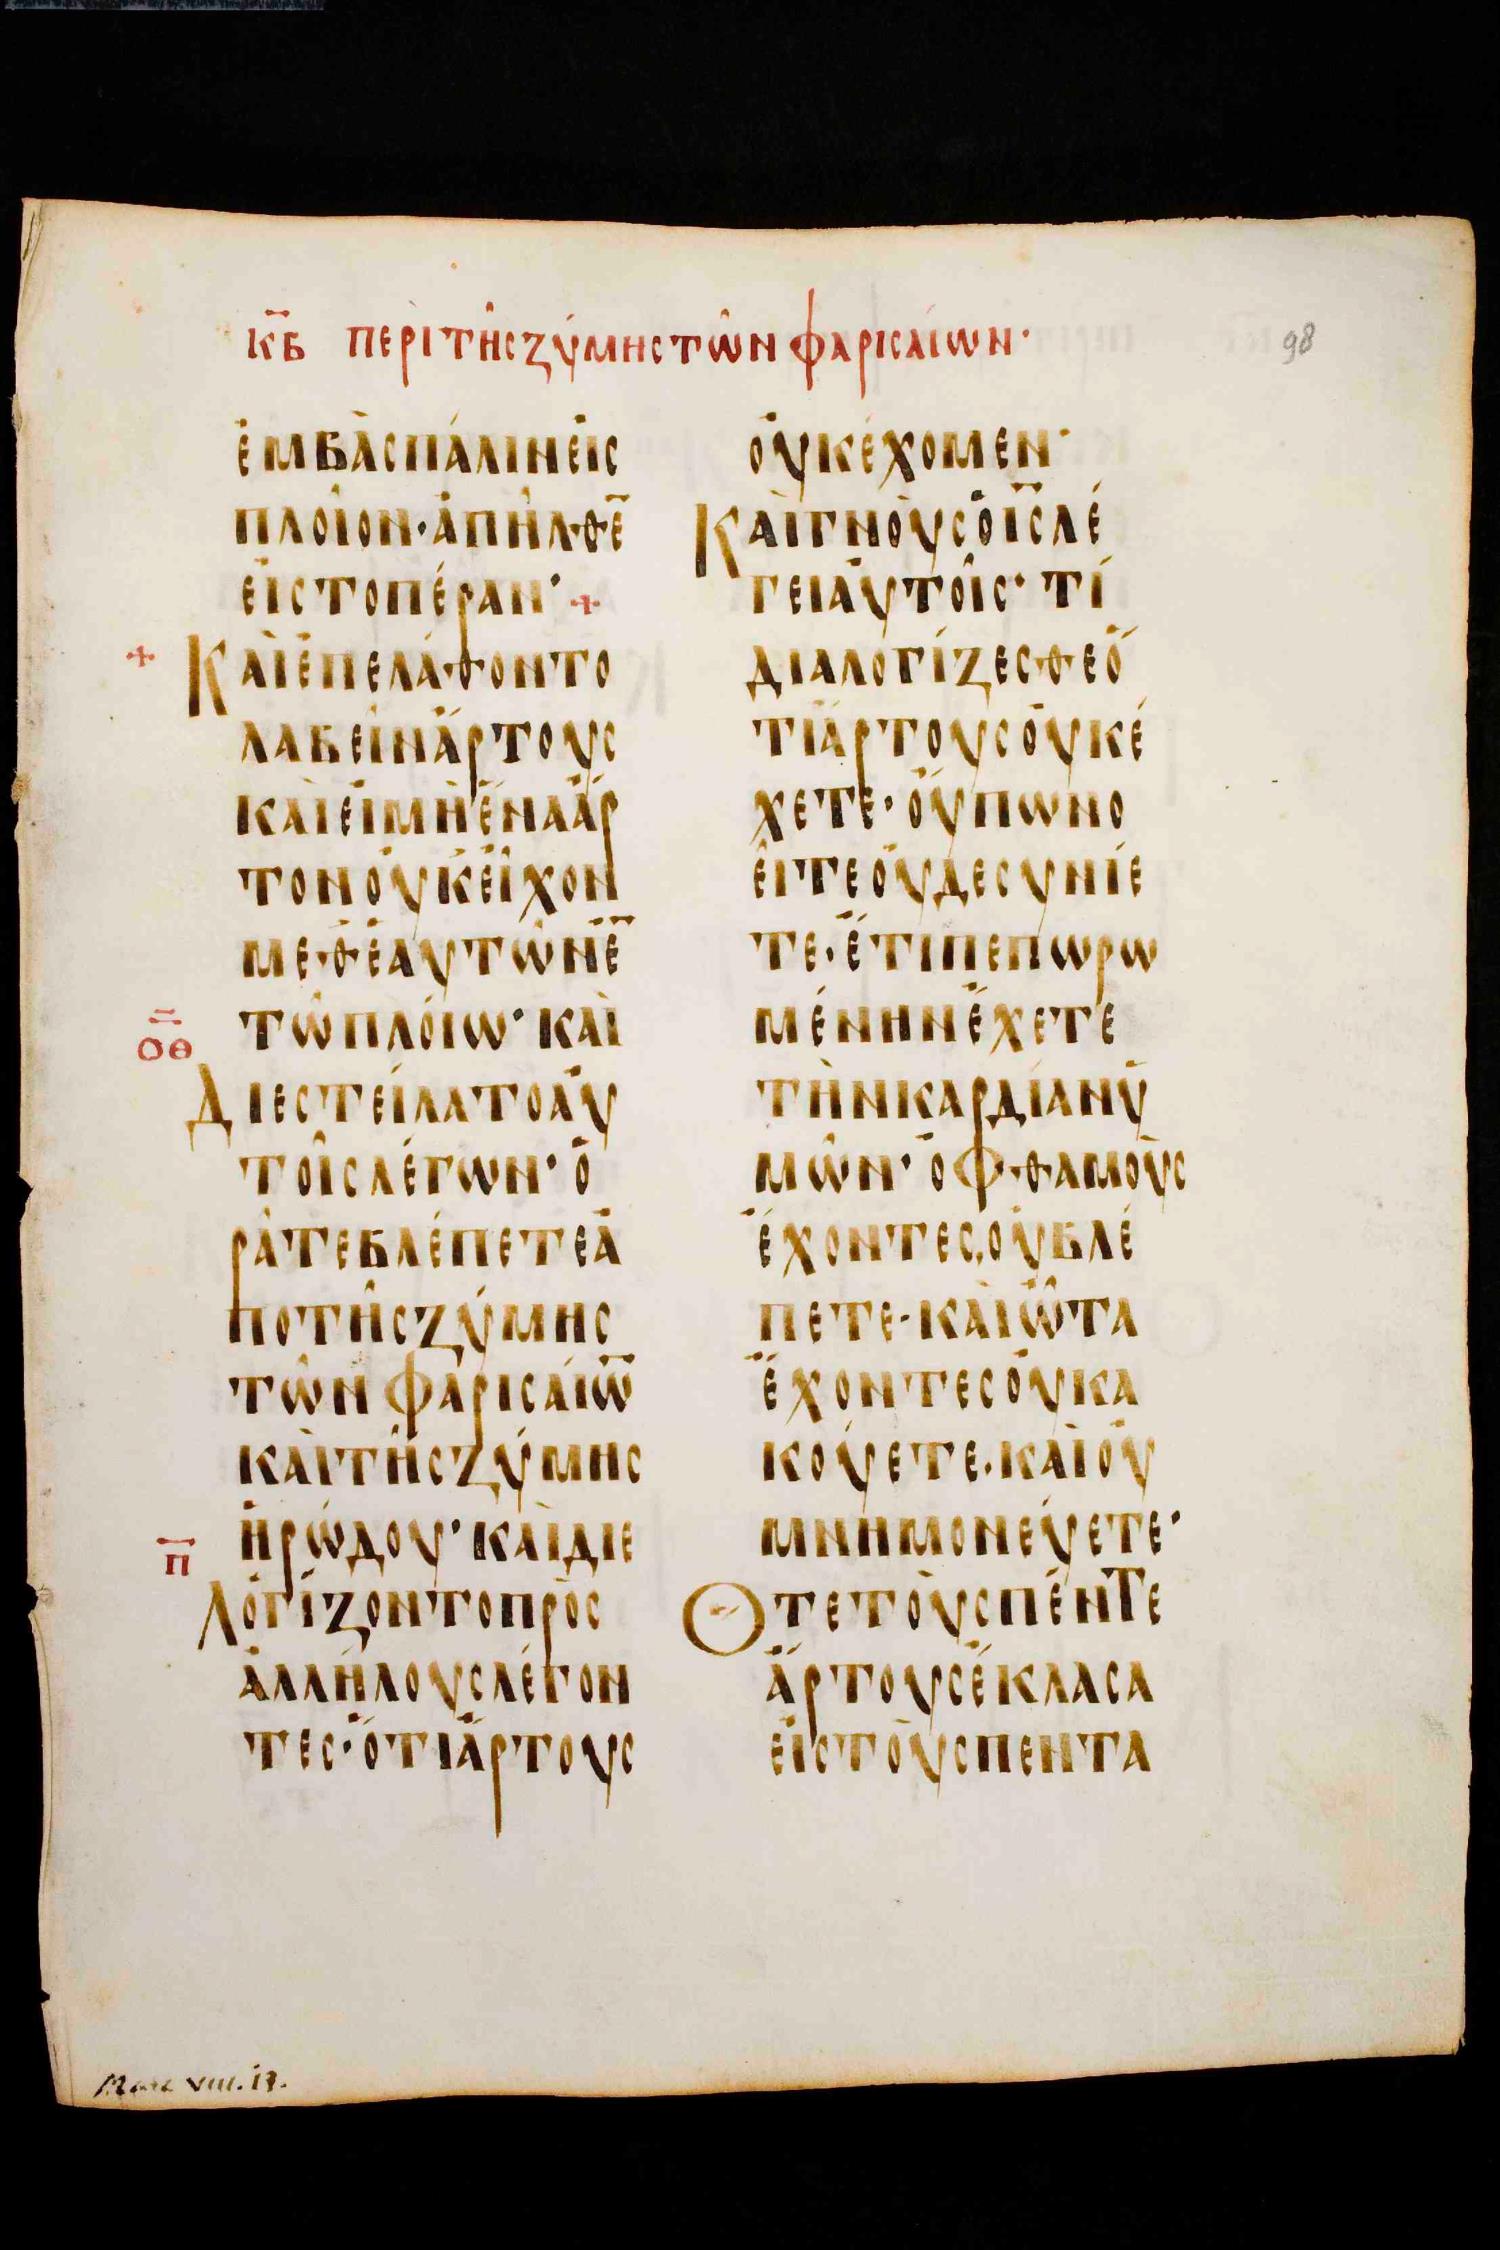 κβ περὶ τῆς ζύμης τῶν φαρισαίων·
98
ἐμβὰς πάλιν εἰς
πλοῖον· ἀπῆλθε̅
εἰς τὸ πέραν· +
+ Καὶ ἐπελάθοντο
λαβεῖν ἄρτους
καὶ εἰ μὴ ἕνα ἄρ
τον οὐκ εἶχον
μεθ ἑαυτῶν ἐ̅
τῶ πλοίω· καὶ
οθ
Διεστείλατο αὐ
τοῖς λέγων· ὁ
ρᾶτε βλέπετε ἀ
πο τῆς ζύμης
τῶν φαρισαίω̅
καὶ τῆς ζύμης
ἡρώδου· καὶ διε
π
Λογίζοντο πρὸς
ἀλλήλους λέγον
τες· ὅτι ἄρτους
οὐκ ἔχομεν·
Καὶ γνοὺς ὁ ι̅ς̅ λέ
γει αὐτοῖς· τί
διαλογίζεσθε ὅ
τι ἄρτους οὐκ ἔ
χετε· οὔπω νο
εῖτε οὐδε συνίε
τε· ἔτι πεπωρω
μένην ἔχετε
τὴν καρδίαν ὑ
μῶν· ὀφθαμοὺς
ἔχοντες, οὐ βλέ
πετε· καὶ ὦτα
ἔχοντες οὐκ ἀ
κούετε· καὶ οὐ
μνημονεύετε·
Οτε τοὺς πέντε
ἄρτους ἔκλασα
εἰς τοὺς πεντα
Marc VIII. 13.